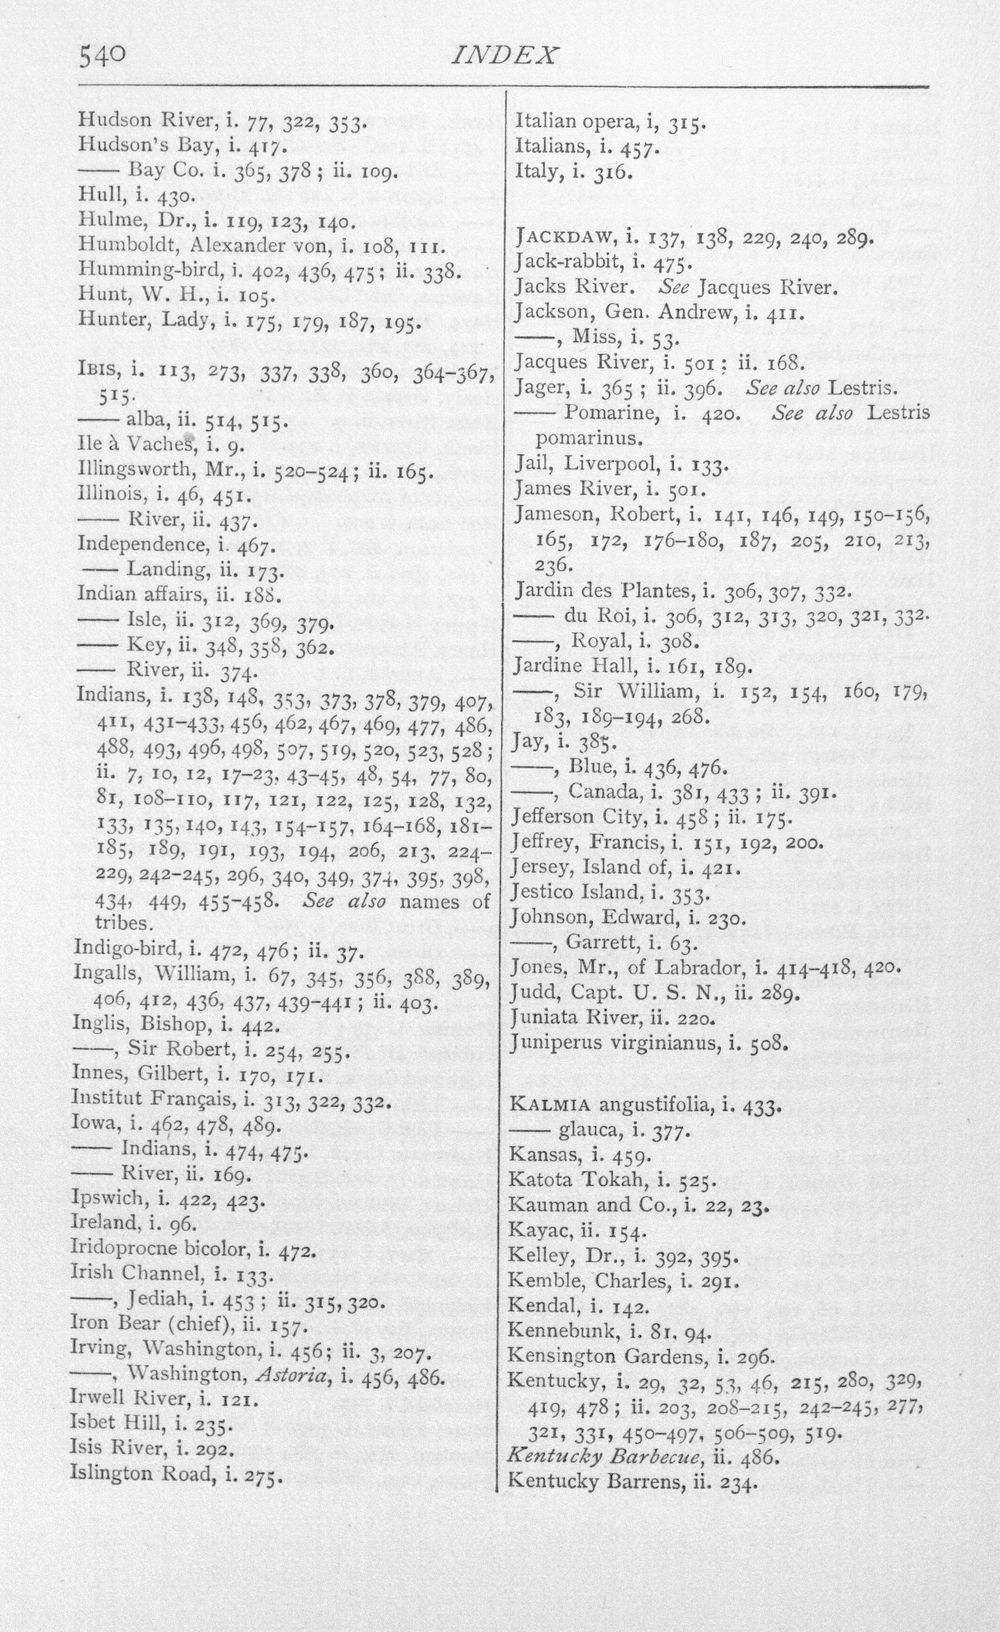 540
INDEX
Hudson River, i. 77, 322, 353.
Hudson's Bay, i. 417.
—— Bay Co. i. 365, 378 ; ii. 109.
Hull, i. 430.
Hulme, Dr., i. 119, 123, 140.
Humboldt, Alexander von, i. 108, 111.
Humming-bird, i. 402, 436, 475; ii. 338.
Hunt, W. H., i. 105.
Hunter, Lady, i. 175, 179, 187, 195.
IBIS, i. 113, 273, 337, 338, 360, 364–367,
515.
—— alba, ii. 514, 515.
Ile à Vaches, i. 9.
Illingsworth, Mr., i. 520–524; ii. 165.
Illinois, i. 46, 451.
—— River, ii. 437.
Independence, i. 467.
—— Landing, ii. 173.
Indian affairs, ii. 188.
—— Isle, ii. 312, 369, 379.
—— Key, ii. 348, 358, 362.
—— River, ii. 374.
Indians, i. 138, 148, 353, 373, 378, 379, 407,
411, 431–433, 456, 462, 467, 469, 477, 486,
488, 493, 496, 498, 507, 519, 520, 523, 528 ;
ii. 7, 10, 12, 17–23, 43–45, 48, 54, 77, 80,
81, 108–110, 117, 121, 122, 125, 128, 132,
133, 135, 140, 143, 154–157, 164–168, 181–
185, 189, 191, 193, 194, 206, 213, 224–
229, 242–245, 296, 340, 349, 374, 395, 398,
434, 449, 455–458. See also names of
tribes.
Indigo-bird, i. 472, 476; ii. 37.
Ingalls, William, i. 67, 345, 356, 388, 389,
406, 412, 436, 437, 439–441 ; ii. 403.
Inglis, Bishop, i. 442.
——, Sir Robert, i. 254, 255.
Innes, Gilbert, i. 170, 171.
Institut Français, i. 313, 322, 332.
Iowa, i. 462, 478, 489.
—— Indians, i. 474, 475.
—— River, ii. 169.
Ipswich, i. 422, 423.
Ireland, i. 96.
Iridoprocne bicolor, i. 472.
Irish Channel, i. 133.
——, Jediah, i. 453 ; ii. 315, 320.
Iron Bear (chief), ii. 157.
Irving, Washington, i. 456; ii. 3, 207.
——, Washington, Astoria, i. 456, 486.
Irwell River, i. 121.
Isbet Hill, i. 235.
Isis River, i. 292.
Islington Road, i. 275.
Italian opera, i, 315.
Italians, i. 457.
Italy, i. 316.
JACKDAW, i. 137, 138, 229, 240, 289.
Jack-rabbit, i. 475.
Jacks River. See Jacques River.
Jackson, Gen. Andrew, i. 411.
——, Miss, i. 53.
Jacques River, i. 501 ; ii. 168.
Jager, i. 365 ; ii. 396. See also Lestris.
—— Pomarine, i. 420. See also Lestris
pomarinus.
Jail, Liverpool, i. 133.
James River, i. 501.
Jameson, Robert, i. 141, 146, 149, 150–156,
165, 172, 176–180, 187, 205, 210, 213,
236.
Jardin des Plantes, i. 306, 307, 332.
—— du Roi, i. 306, 312, 313, 320, 321, 332.
——, Royal, i. 308.
Jardine Hall, i. 161, 189.
——, Sir William, i. 152, 154, 160, 179,
183, 189–194, 268.
Jay, i. 385.
——, Blue, i. 436, 476.
——, Canada, i. 381, 433 ; ii. 391.
Jefferson City, i. 458 ; ii. 175.
Jeffrey, Francis, i. 151, 192, 200.
Jersey, Island of, i. 421.
Jestico Island, i. 353.
Johnson, Edward, i. 230.
——, Garrett, i. 63.
Jones, Mr., of Labrador, i. 414–418, 420.
Judd, Capt. U. S. N., ii. 289.
Juniata River, ii. 220.
Juniperus virginianus, i. 508.
KALMIA angustifolia, i. 433.
—— glauca, i. 377.
Kansas, i. 459.
Katota Tokah, i. 525.
Kauman and Co., i. 22, 23.
Kayac, ii. 154.
Kelley, Dr., i. 392, 395.
Kemble, Charles, i. 291.
Kendal, i. 142.
Kennebunk, i. 81, 94.
Kensington Gardens, i. 296.
Kentucky, i. 29, 32, 53, 46, 215, 280, 329,
419, 478 ; ii. 203, 208–215, 242–245, 277,
321, 331, 450–497, 506–509, 519.
Kentucky Barbecue, ii. 486.
Kentucky Barrens, ii. 234.